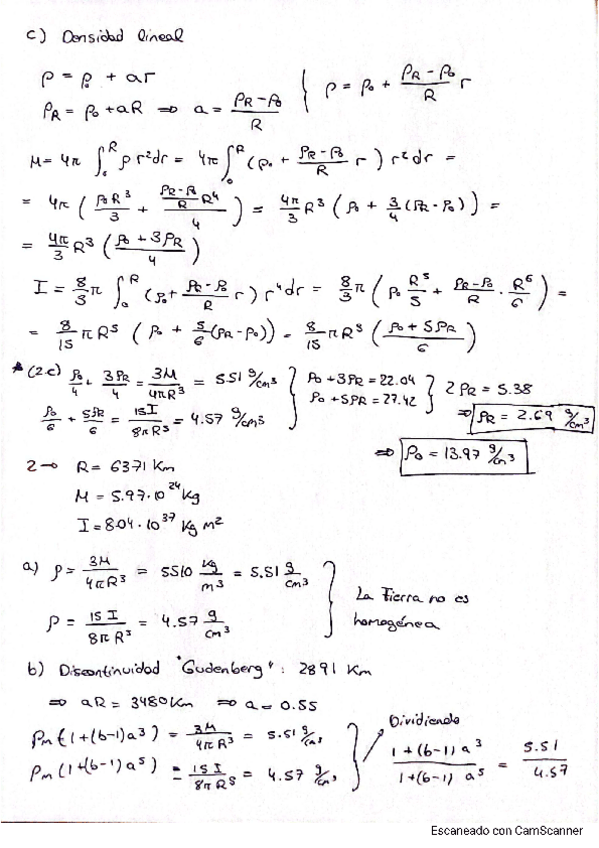 c) Densidad lineal
ρ = ρ₀ + ar
ρR = ρ₀ + aR ⇒ a = (ρR − ρ₀)/R } ρ = ρ₀ + (ρR − ρ₀)/R r
M = 4π ∫₀ᴿ ρ r² dr = 4π ∫₀ᴿ (ρ₀ + (ρR − ρ₀)/R r) r² dr =
= 4π (ρ₀R³/3 + ((ρR − ρ₀)/R R⁴)/4) = 4π/3 R³ (ρ₀ + 3/4 (ρR − ρ₀)) =
= 4π/3 R³ ((ρ₀ + 3ρR)/4)
I = 8/3 π ∫₀ᴿ (ρ₀ + (ρR − ρ₀)/R r) r⁴ dr = 8/3 π (ρ₀ R⁵/5 + (ρR − ρ₀)/R · R⁶/6) =
= 8/15 π R⁵ (ρ₀ + 5/6 (ρR − ρ₀)) = 8/15 π R⁵ ((ρ₀ + 5ρR)/6)
* (2.c) ρ₀/4 + 3ρR/4 = 3M/4πR³ = 5.51 g/cm³ } ρ₀ + 3ρR = 22.04 } 2ρR = 5.38
ρ₀/6 + 5ρR/6 = 15I/8πR⁵ = 4.57 g/cm³ } ρ₀ + 5ρR = 27.42 ⇒ ρR = 2.69 g/cm³
⇒ ρ₀ = 13.97 g/cm³
2→ R = 6371 Km
M = 5.97·10²⁴ Kg
I = 8.04·10³⁷ Kg m²
a) ρ = 3M/4πR³ = 5510 kg/m³ = 5.51 g/cm³
ρ = 15I/8πR³ = 4.57 g/cm³ } La Tierra no es homogénea
b) Discontinuidad "Gudenberg": 2891 Km
⇒ aR = 3480 Km ⇒ a = 0.55
ρm (1+(b−1)a³) = 3M/4πR³ = 5.51 g/cm³
ρm (1+(b−1)a⁵) = 15I/8πR⁵ = 4.57 g/cm³
Dividiendo
(1+(b−1)a³)/(1+(b−1)a⁵) = 5.51/4.57
Escaneado con CamScanner